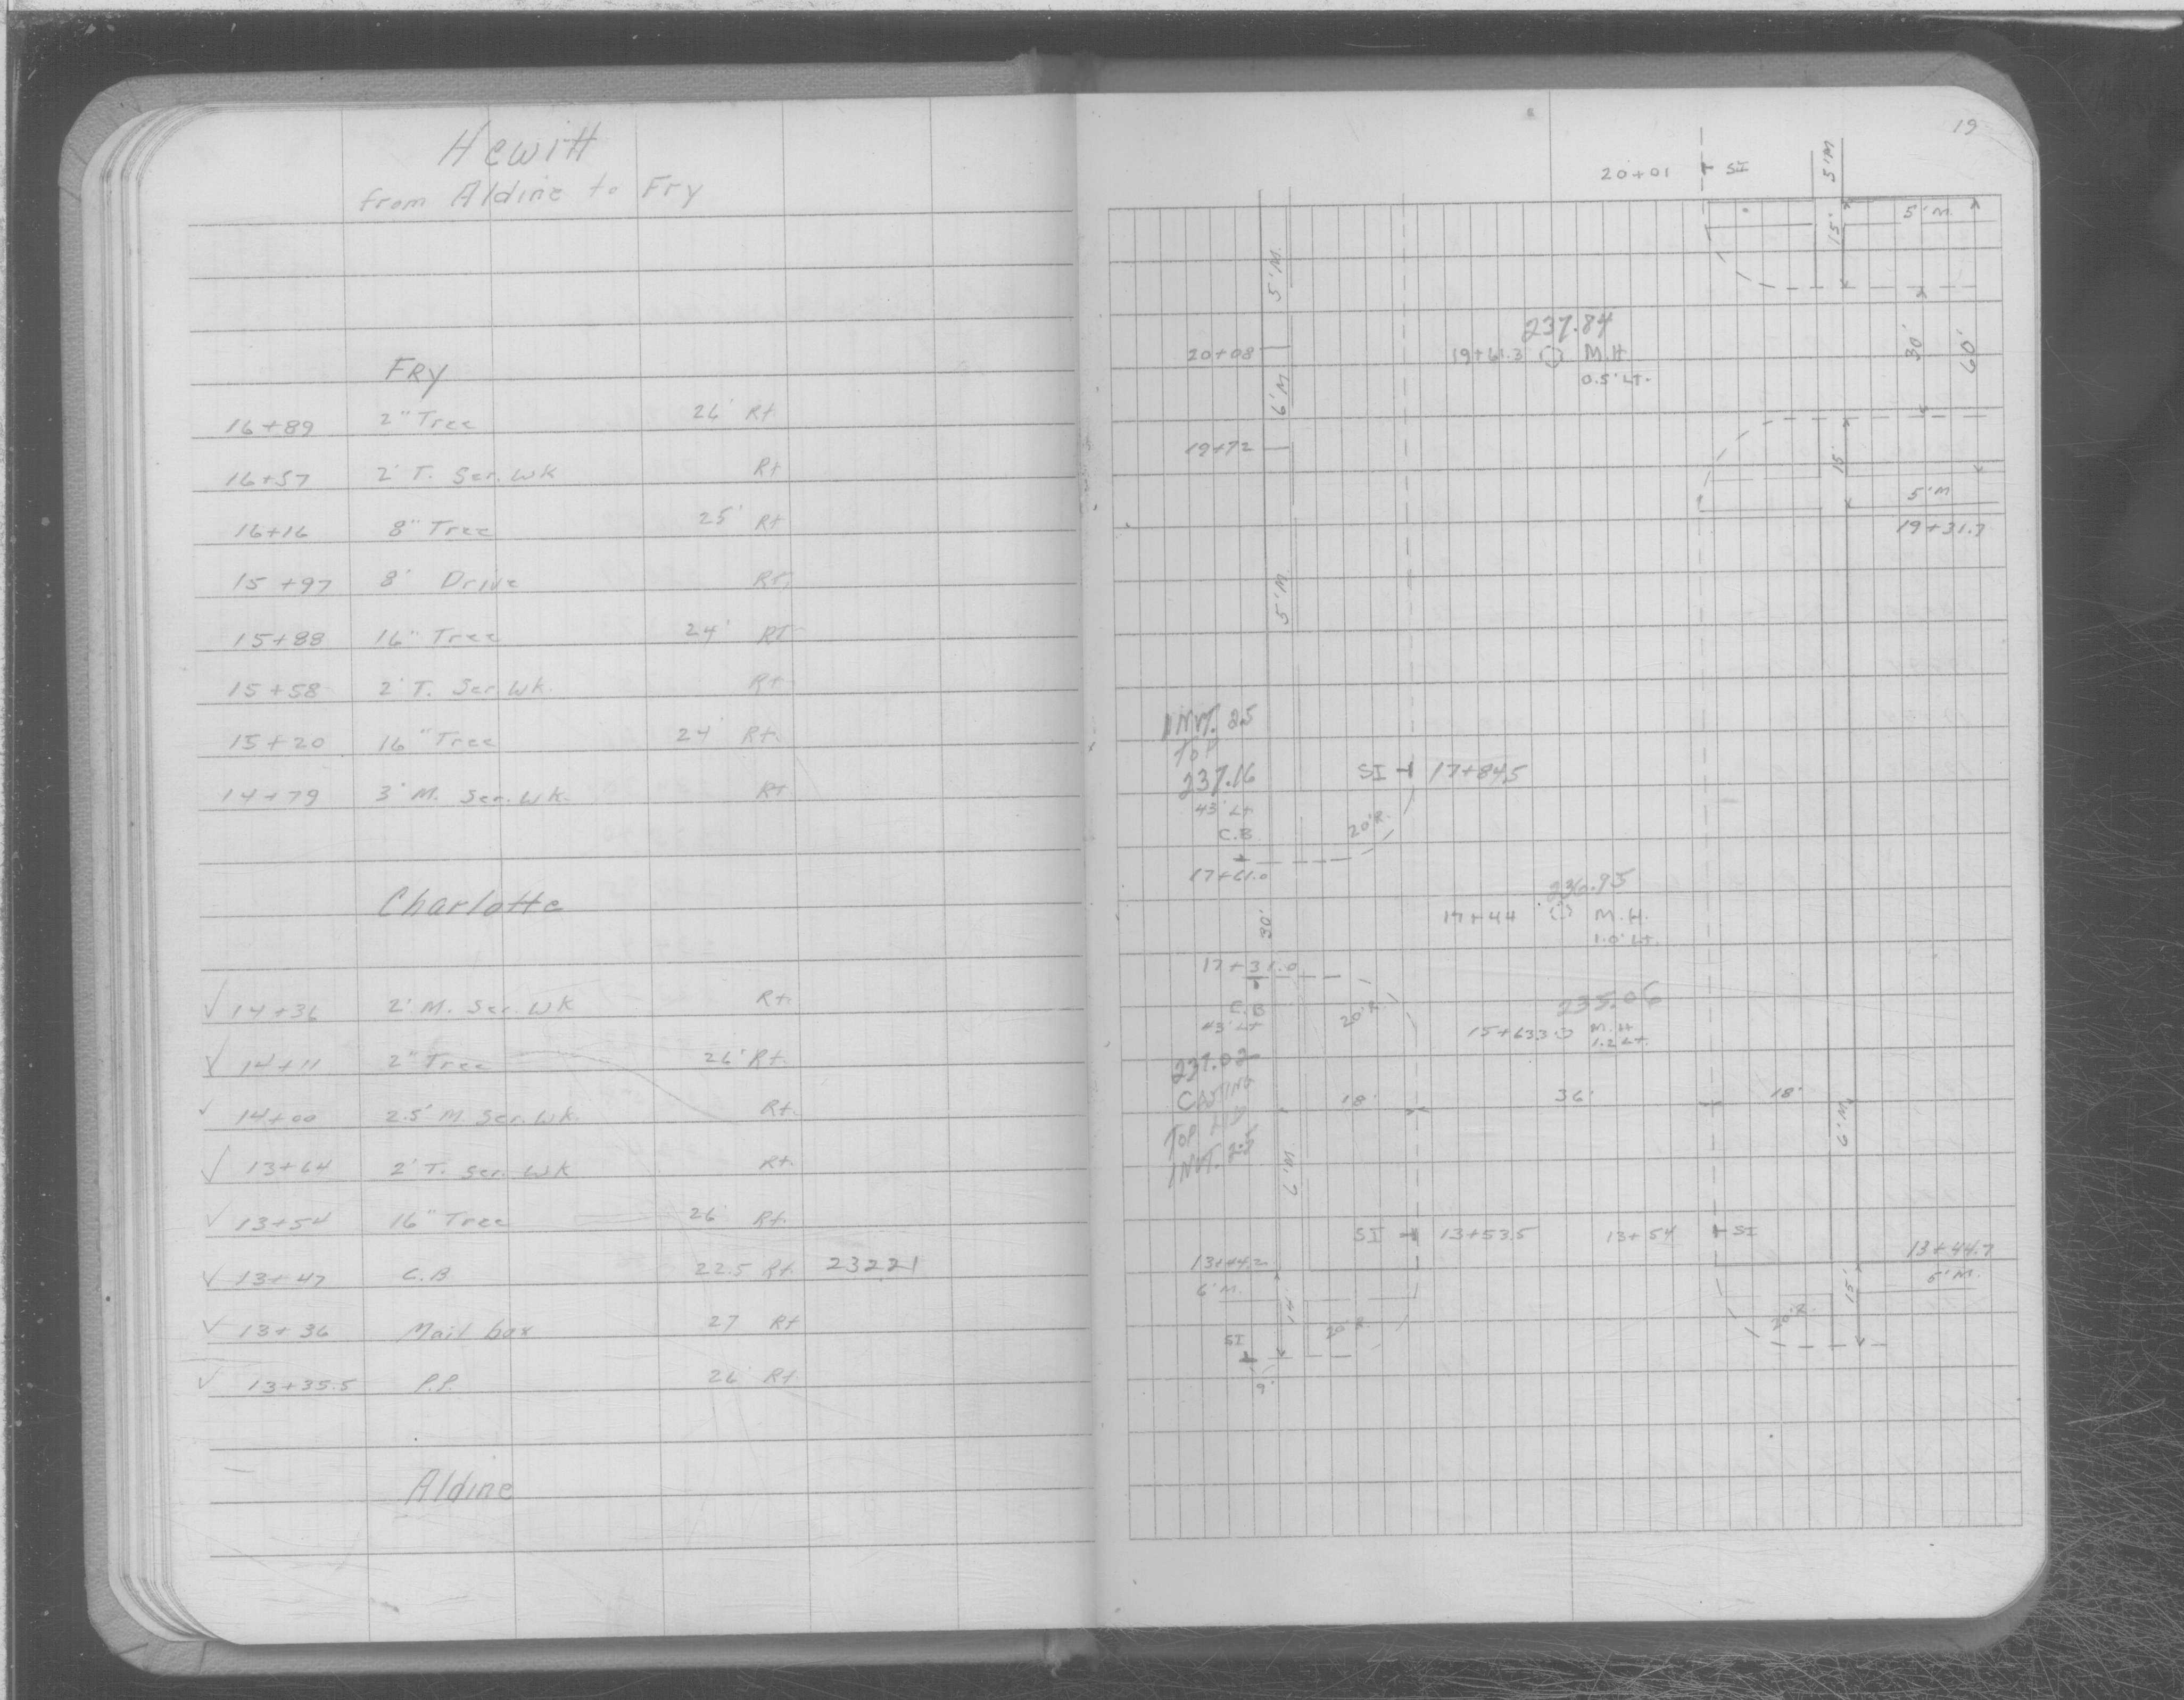 Hewitt
from Aldine to Fry
FRY
16+89 2" Tree 26' Rt
16+57 2' T. Ser. Wk Rt
16+16 8" Tree 25' Rt
15+97 8' Drive Rt.
15+88 16" Tree 24' Rt
15+58 2' T. Ser. Wk. Rt
15+20 16" Tree 24' Rt.
14+79 3' M. Ser. Wk. Rt
Charlotte
✓ 14+36 2' M. Ser. Wk Rt.
✓ 14+11 2" Tree 26' Rt.
✓ 14+00 2.5' M. Ser. Wk. Rt.
✓ 13+64 2' T. Ser. Wk Rt.
✓ 13+54 16" Tree 26' Rt.
✓ 13+47 C.B 22.5 Rt. 232.21
✓ 13+36 Mail box 27 Rt
✓ 13+35.5 P.P. 26 Rt
Aldine
19
20+01 SI 5'M
5'M. 15' 5'M.
237.84
20+08 19+61.3 M.H. 30' 60'
0.5' Lt.
6'M
19+72 15'
5'M
19+31.7
5'M
INVT. 2.5
TOP
237.16 SI 17+84.5
43' Lt
C.B 20'R.
17+61.0
236.95
30' 17+44 M.H.
1.0' Lt.
17+31.0
C.B 20'R. 235.06
43' Lt 15+63.3 M.H
1.2 Lt.
237.02
CASTING 18' 36' 18'
TOP
INVT. 2.5 6'M 6'M.
SI 13+53.5 13+54 SI
13+44.2 13+44.7
6'M. 14' 15' 5'M.
20'R. 20'R.
SI
9'